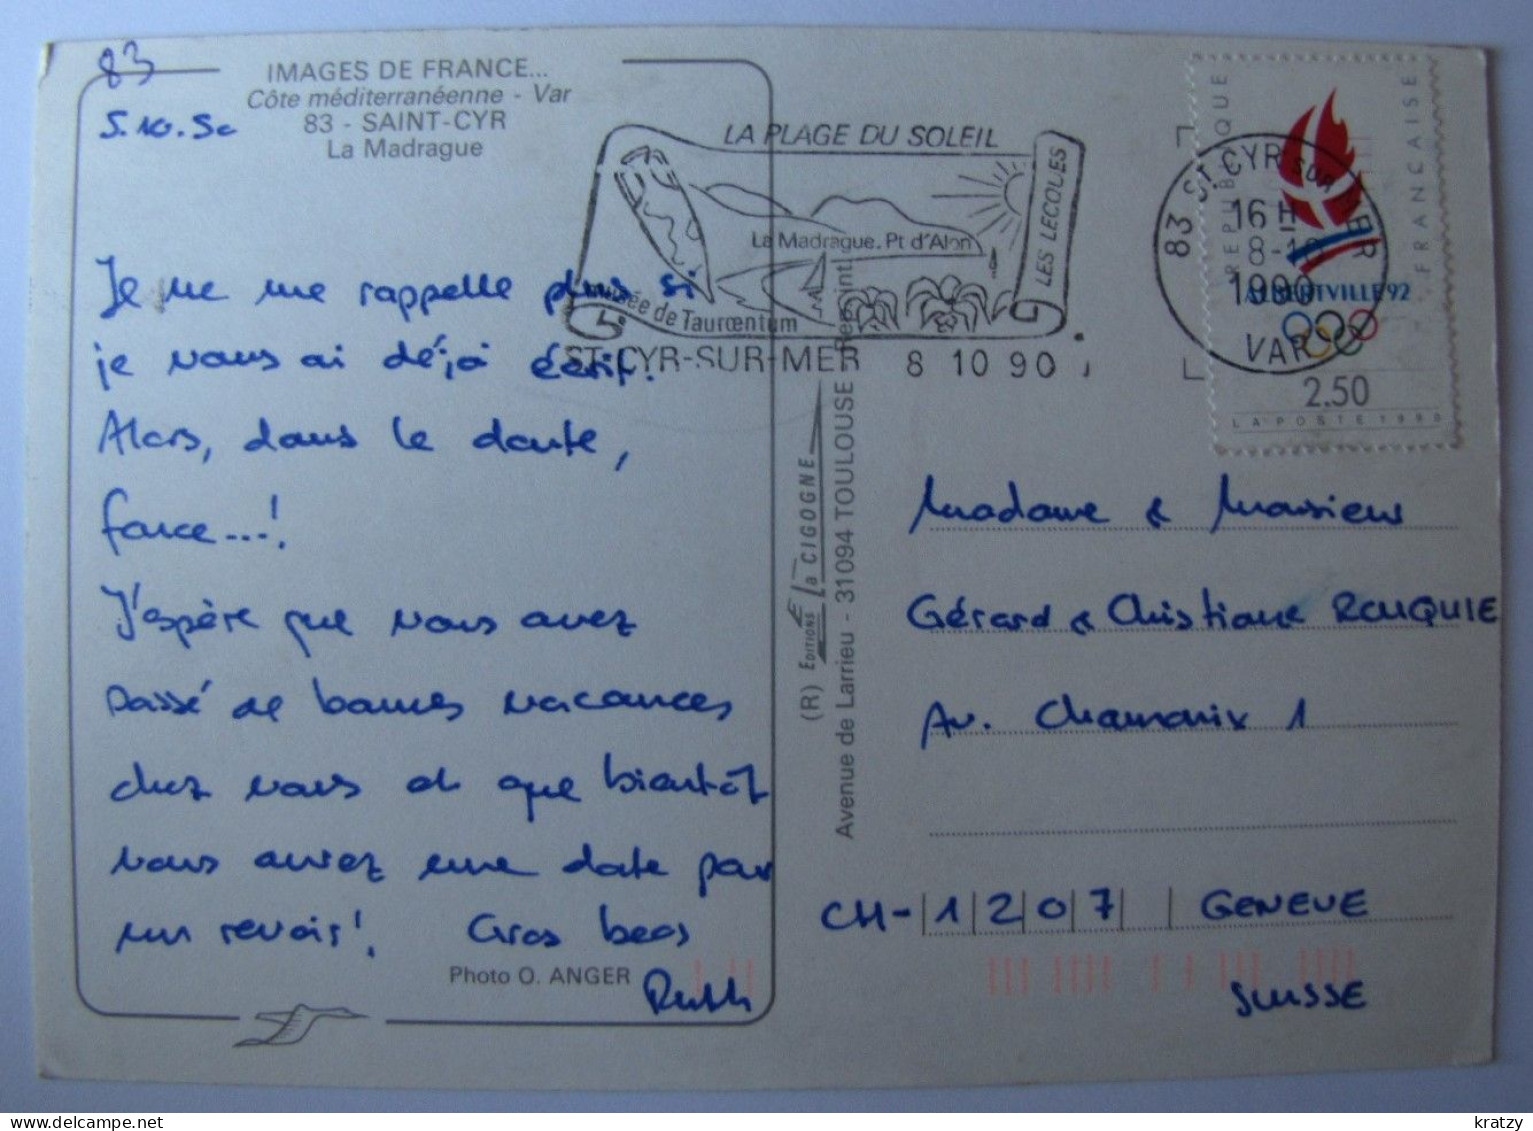 83
5.10.90
IMAGES DE FRANCE...
Côte méditerranéenne - Var
83 - SAINT-CYR
La Madrague
Je ne me rappelle plus si
je vous ai déjà écrit.
Alors, dans le doute,
force...!
J'espère que vous avez
passé de bonnes vacances
chez vous et que bientôt
vous aurez une date pour
un revoir! Gros becs
Ruth
Photo O. ANGER
LA PLAGE DU SOLEIL
LES LECQUES
La Madrague. Pt d'Alon
Musée de Tauroentum
ST-CYR-SUR-MER 8 10 90
83 ST. CYR SUR MER
16 H
8-10
1990
VAR
REPUBLIQUE
FRANCAISE
ALBERTVILLE 92
2.50
LA POSTE 1990
(R) EDITIONS La CIGOGNE
Avenue de Larrieu - 31094 TOULOUSE
Madame & Monsieur
Gérard & Christiane ROUQUIE
Av. Chamonix 1
CH-1207 GENEVE
SUISSE
Kratzy